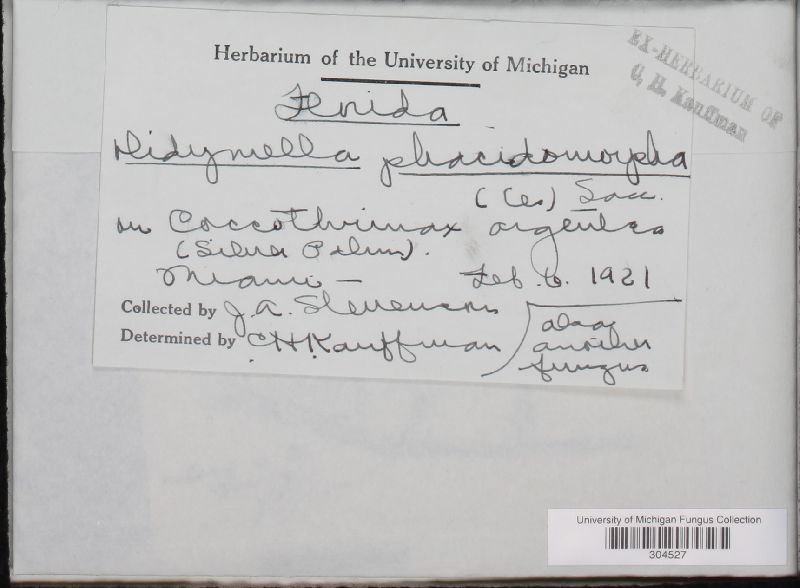 Herbarium of the University of Michigan
EX-HERBARIUM OF
C. H. Kauffman
Florida
Didymella phacidiomorpha
(Ces) Sacc.
on Coccothrinax argentea
(Silver Palm).
Miami — Feb. 6. 1921
Collected by J. A. Stevenson
Determined by C H Kauffman
also
another
fungus
University of Michigan Fungus Collection
304527